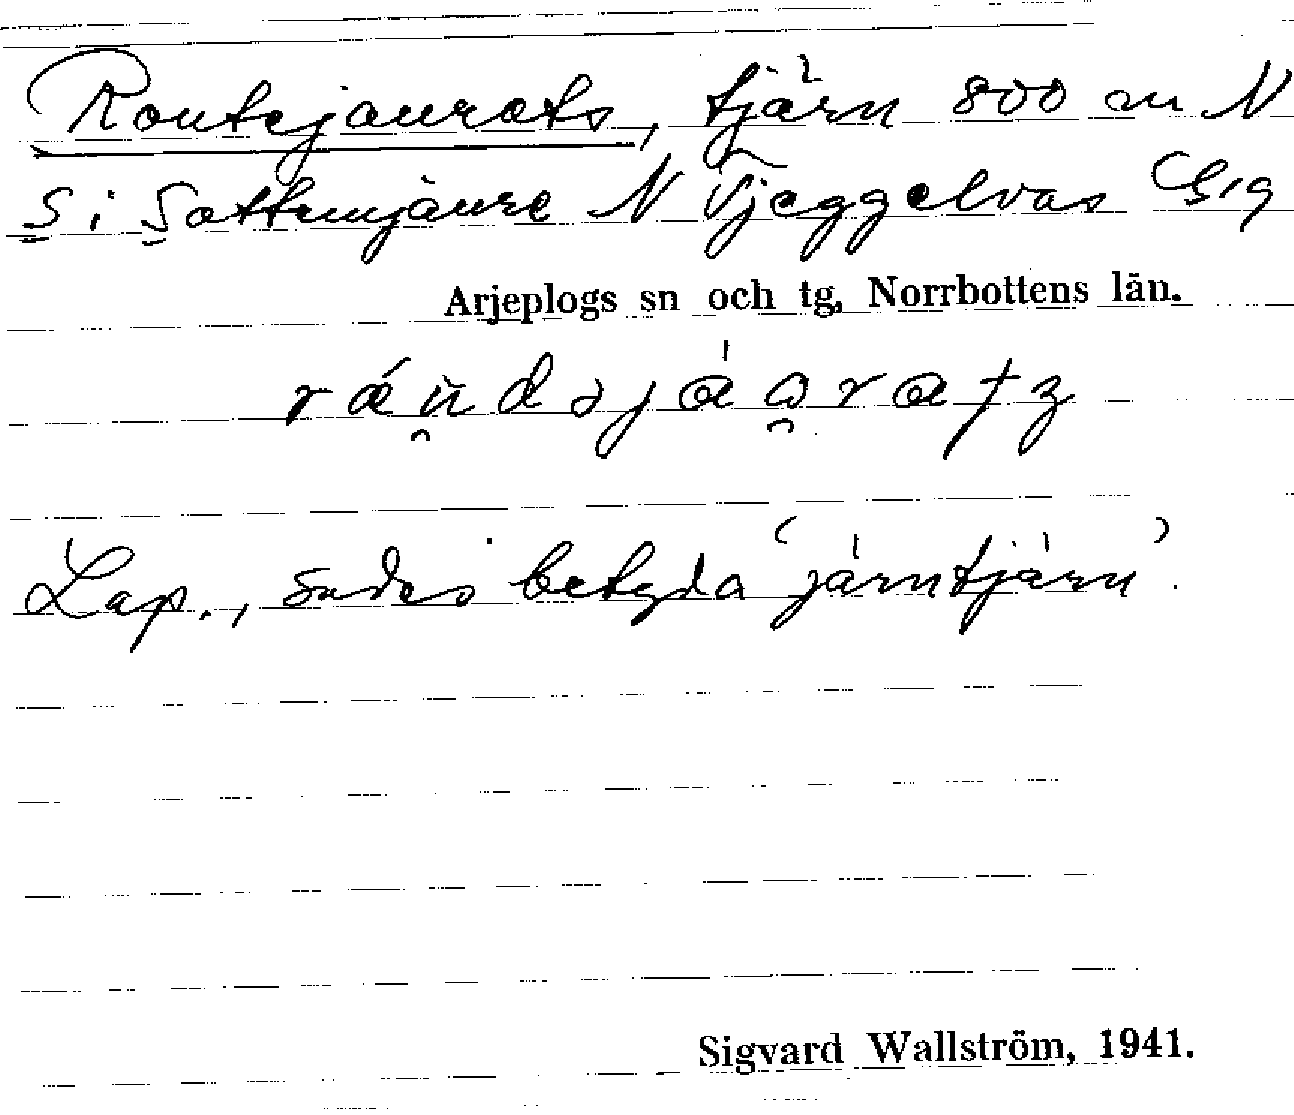 Routejaurats, tjärn 800 m N
S i Sattemjaure N Tjeggelvas G19
Arjeplogs sn och tg, Norrbottens län.
Lap., sades betyda 'järntjärn'.
Sigvard Wallström, 1941.